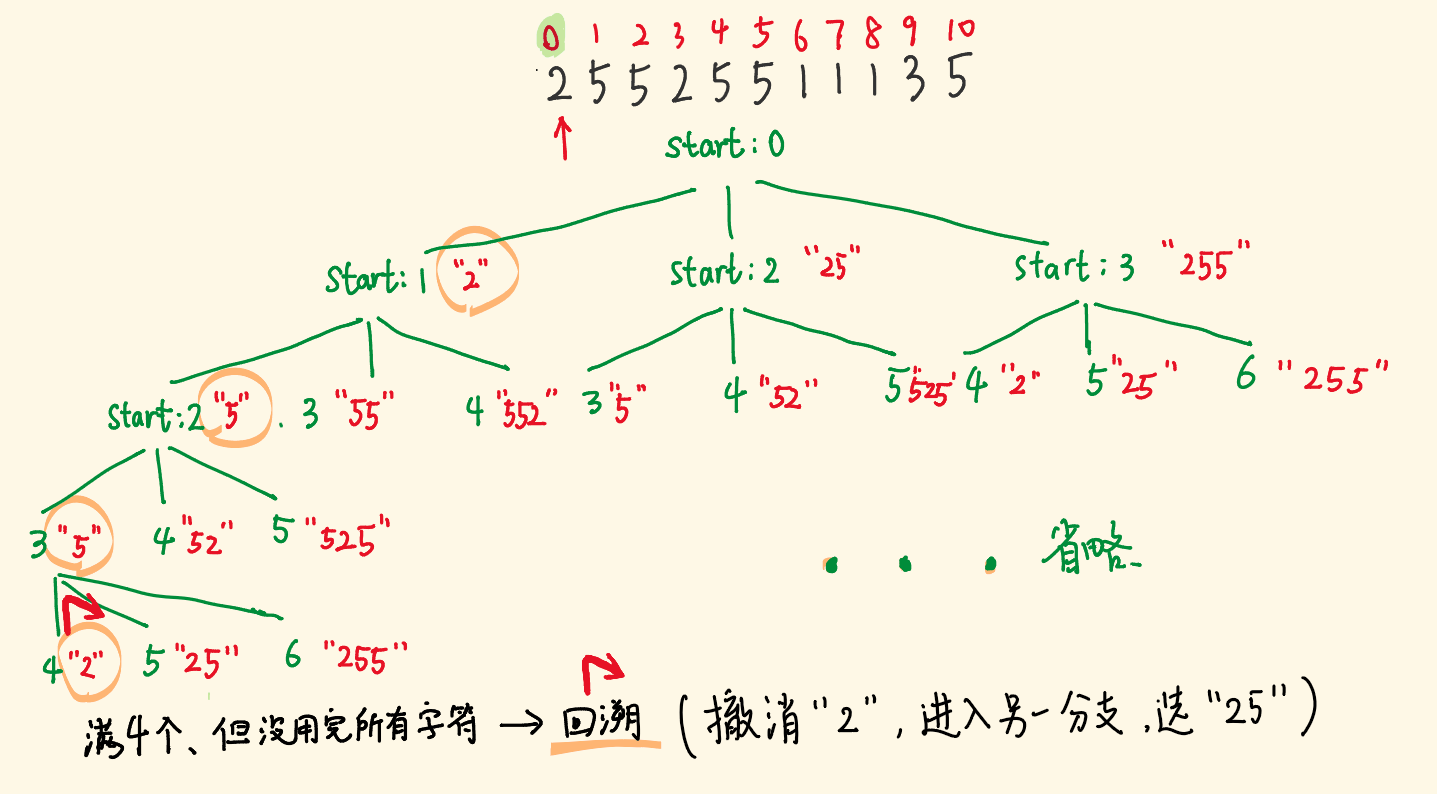 0 1 2 3 4 5 6 7 8 9 10
2 5 5 2 5 5 1 1 1 3 5
start:0
start:1 "2" start:2 "25" start:3 "255"
start:2 "5" . 3 "55" 4 "552" 3 "5" 4 "52" 5 "525" 4 "2" 5 "25" 6 "255"
3 "5" 4 "52" 5 "525"
. . . 省略
4 "2" 5 "25" 6 "255"
满4个、但没用完所有字符 → 回溯 (撤消"2", 进入另一分支,选"25")